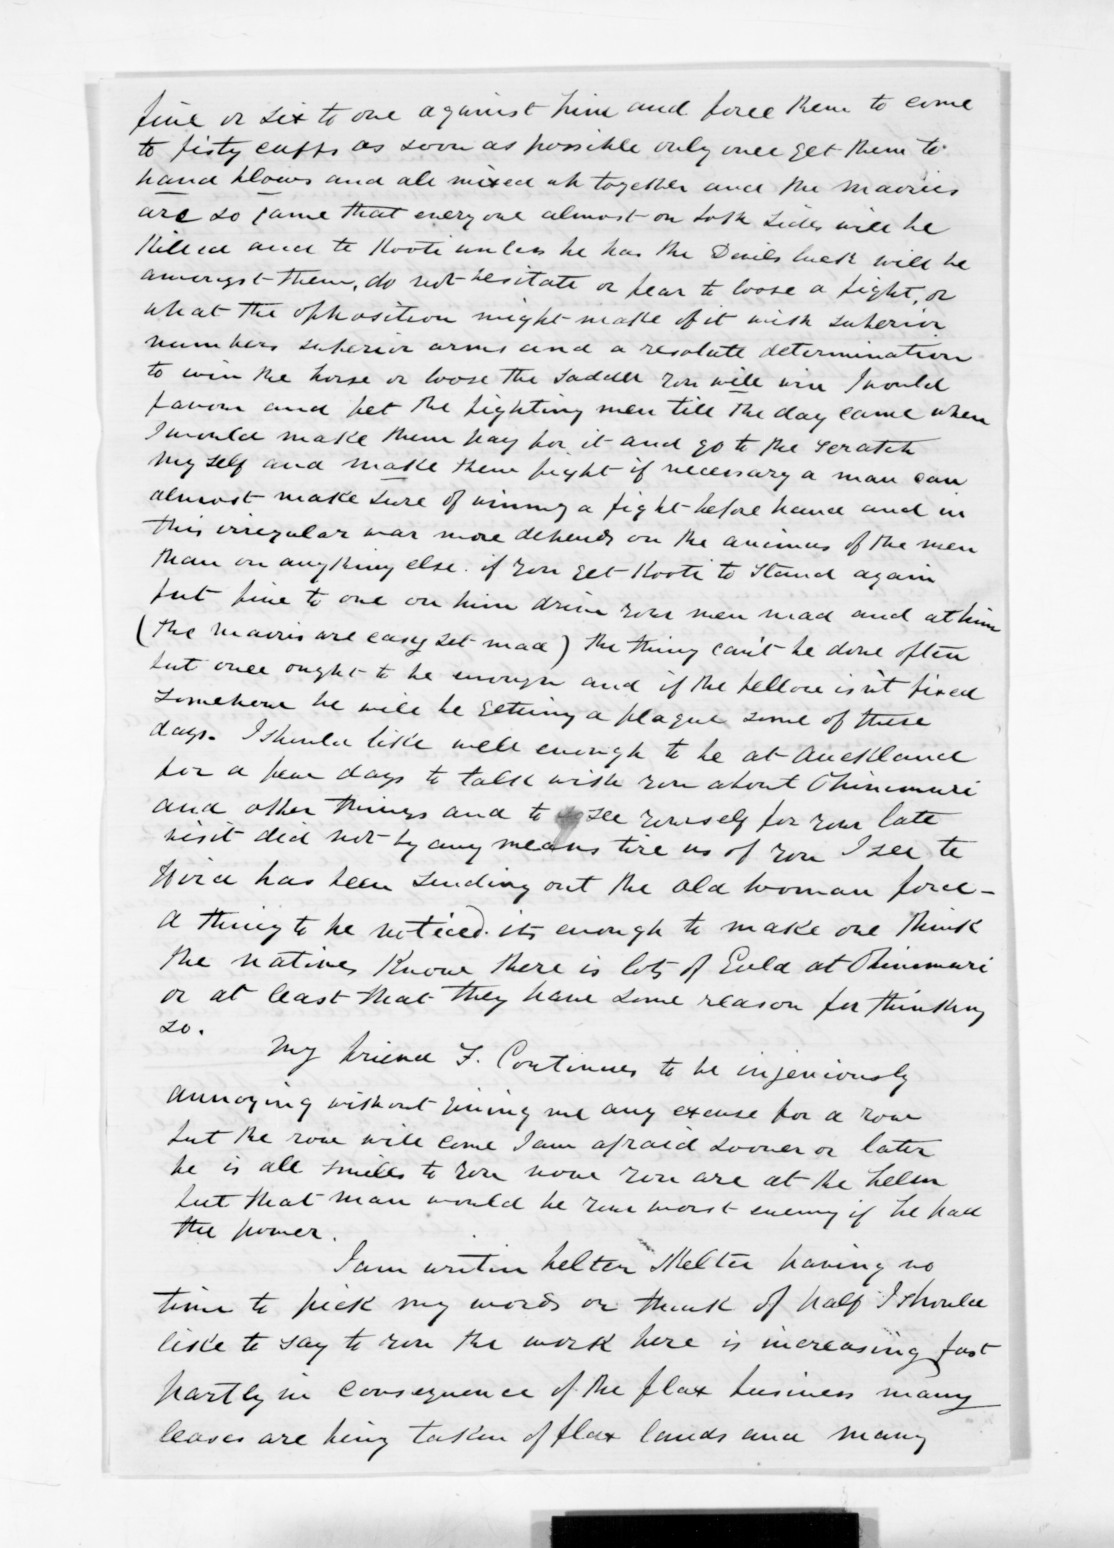 five or six to one against him and force them to come
to fisty cuffs as soon as possible only once get them to
hand blows and all mixed up together and the maories
are so game that every one almost on both sides will be
killed and te Kooti unless he has the Devils luck will be
amongst them, do not hesitate or fear to loose a fight, or
what the opposition might make of it with superior
numbers superior arms and a resolute determination
to win the horse or loose the saddle you will win I would
favour and pet the fighting men till the day came when
I would make them pay for it and go to the scratch
myself and make them fight if necessary a man can
almost make sure of wining a fight before hand and in
this irregular war more depends on the animus of the men
than on anything else. if you get Kooti to stand again
put five to one on him drive your men mad and at him
(the maoris are easy set mad) the thing can't be done often
but once ought to be enough and if the fellow isn't fixed
somehow he will be getting a plague some of these
days. I should like well enough to be at Auckland
for a few days to talk with you about Ohinemuri
and other things and to see yourself for your late
visit did not by any means tire us of you I see te
Hira has been sending out the old woman force -
a thing to be noticed. its enough to make one think
the natives know there is lots of Gold at Ohinemuri
or at least that they have some reason for thinking
so.
My friend F. Continues to be injeniously
annoying without giving me any excuse for a row
but the row will come I am afraid sooner or later
he is all smiles to you now you are at the helm
but that man would be your worst enemy if he had
the power.
I am writin helter skelter having no
time to pick my words or think of half I should
like to say to you the work here is increasing fast
partly in consequence of the flax business many
leases are being taken of flax lands and many